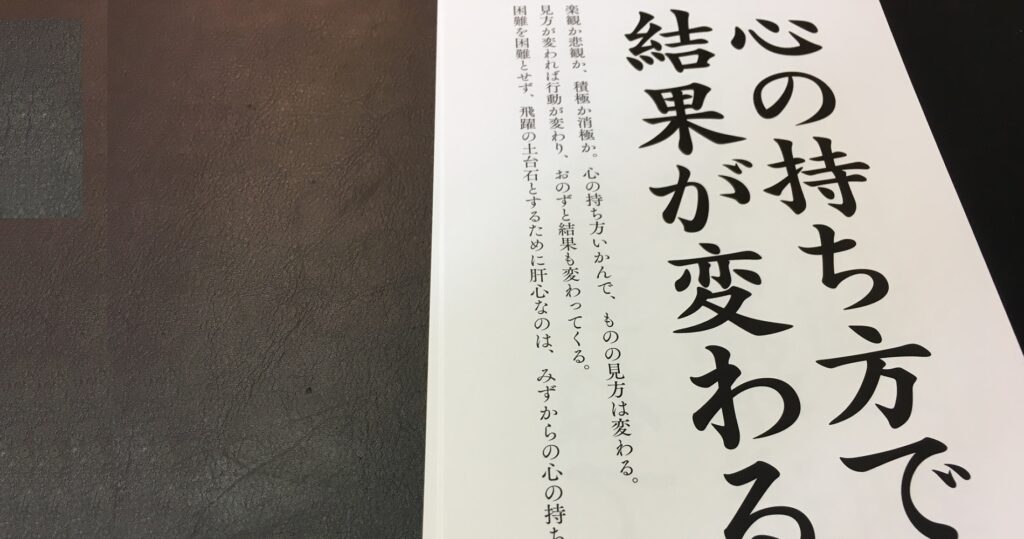 心の持ち方で
結果が変わる
楽観か悲観か、積極か消極か。心の持ち方いかんで、ものの見方は変わる。
見方が変われば行動が変わり、おのずと結果も変わってくる。
困難を困難とせず、飛躍の土台石とするために肝心なのは、みずからの心の持ち